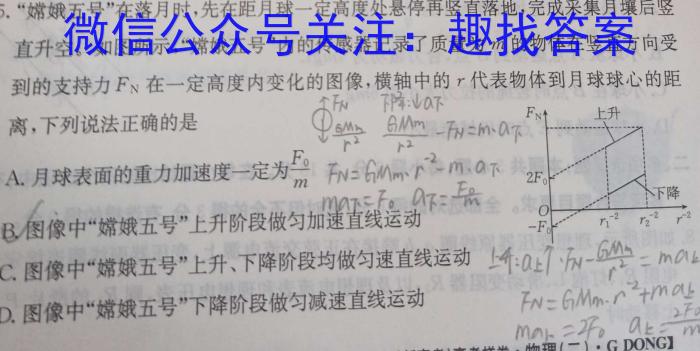 5.“嫦娥五号”在落月时,先在距月球一定高度处悬停再竖直落地,完成采集月壤后竖
微信公众号关注:趣找答案
直升空。如图所示“嫦娥五号”内的传感器记录了质量为m的物体在竖直方向受
到的支持力 FN 在一定高度内变化的图像,横轴中的 r 代表物体到月球球心的距
离,下列说法正确的是
A. 月球表面的重力加速度一定为F₀/m
B. 图像中“嫦娥五号”上升阶段做匀加速直线运动
C. 图像中“嫦娥五号”上升、下降阶段均做匀速直线运动
D. 图像中“嫦娥五号”下降阶段做匀减速直线运动
FN
上升
2F₀
下降
O
r₁⁻² r₂⁻² r⁻²
-F₀
FN 下降:↓a下
GMm/r² GMm/r² - FN = m·a下
FN = GMm·r⁻² - m·a下
ma下 = F₀ a下 = F₀/m
上升:a上↑ FN - GMm/r² = ma上
FN = GMm·r⁻² + ma上
ma上 = 2F₀ a上 = 2F₀/m
物理(二)·G DONG】